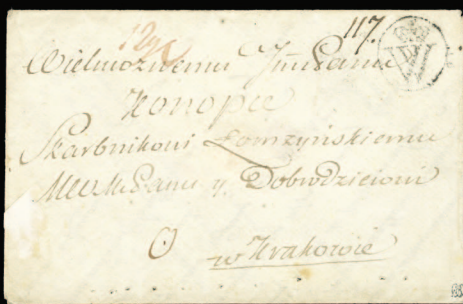 12 gr
117.
Wielmożnemu Jmć Panu
Konopce
Skarbnikowi Łomżyńskiemu
Panu y Dobrodzieiowi
w Krakowie